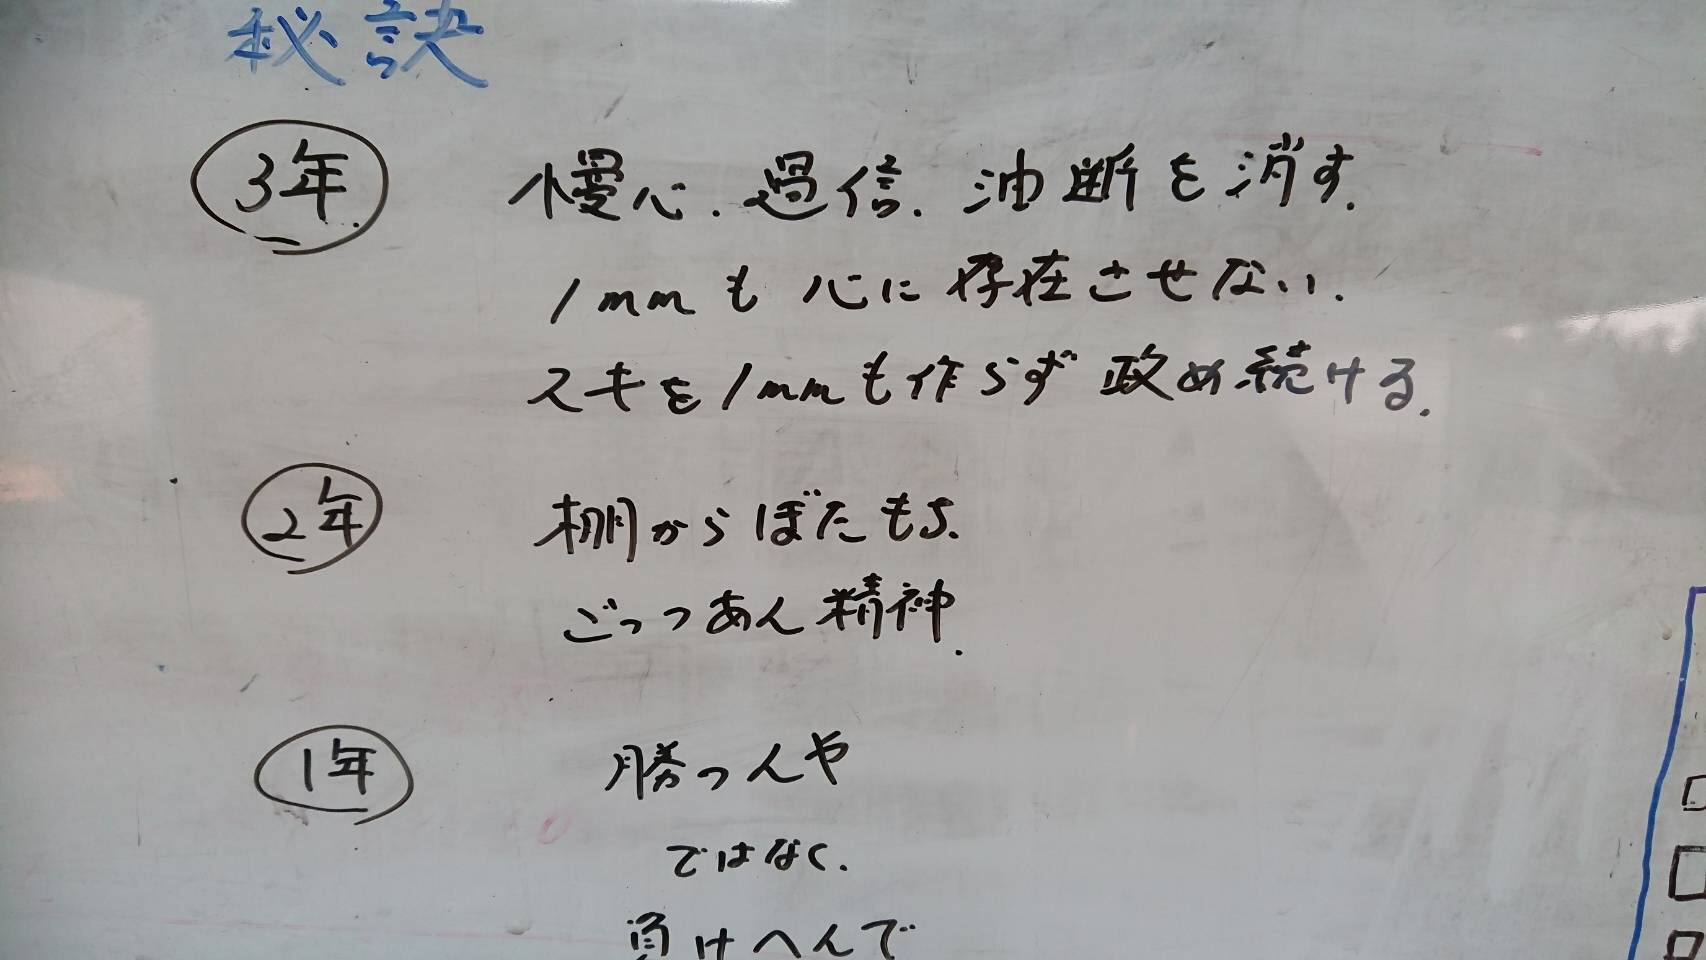 秘訣
3年. 慢心.過信.油断を消す.
1mmも心に存在させない.
スキを1mmも作らず攻め続ける.
2年 棚からぼたもち.
ごっつあん精神.
1年 勝つんや
ではなく.
負けへんで